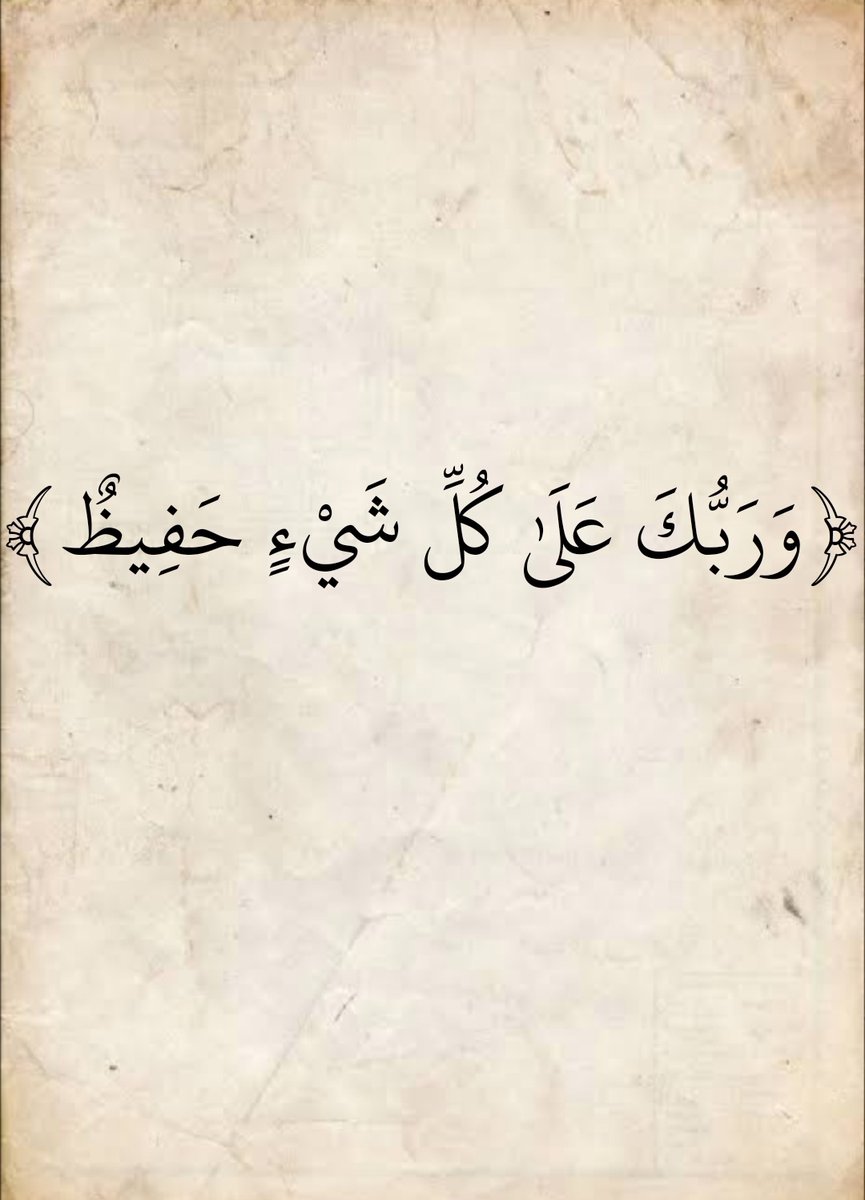 ﴿وَرَبُّكَ عَلَىٰ كُلِّ شَيْءٍ حَفِيظٌ﴾